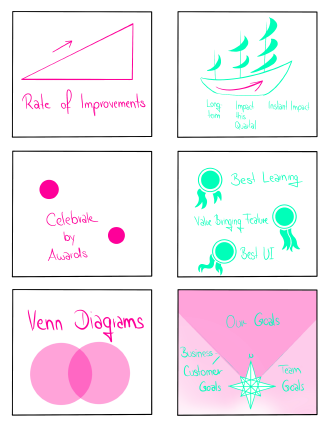 Rate of Improvements
Long term
Impact this Quartal
Instant Impact
Celebrate
by
Awards
Best Learning
Value Bringing Feature
Best UI
Venn Diagrams
Our Goals
Business/
Customer
Goals
Team
Goals